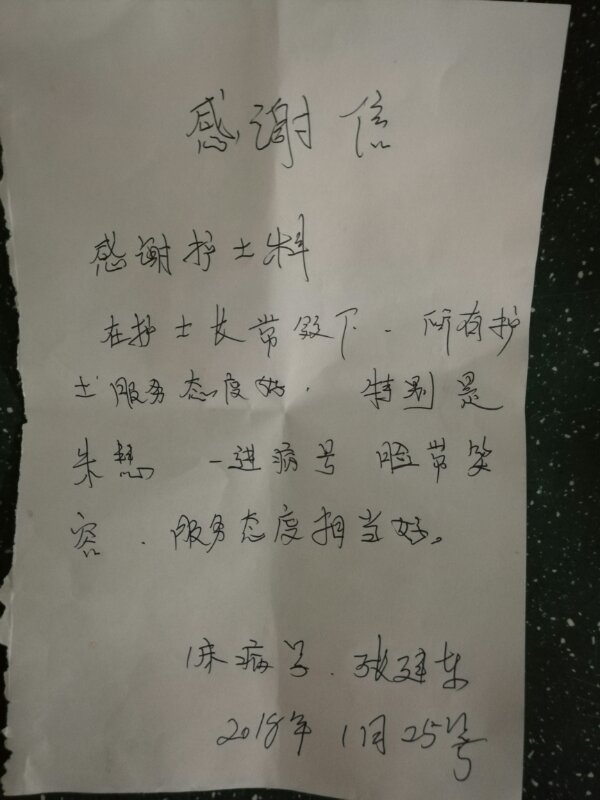 感谢信
感谢护士料
在护士长常毁下.所有护
士服务态度好.特别是
朱慧 一进病号 脸带笑
容.服务态度相当好。
1床病号.张建东
2018年1月25号